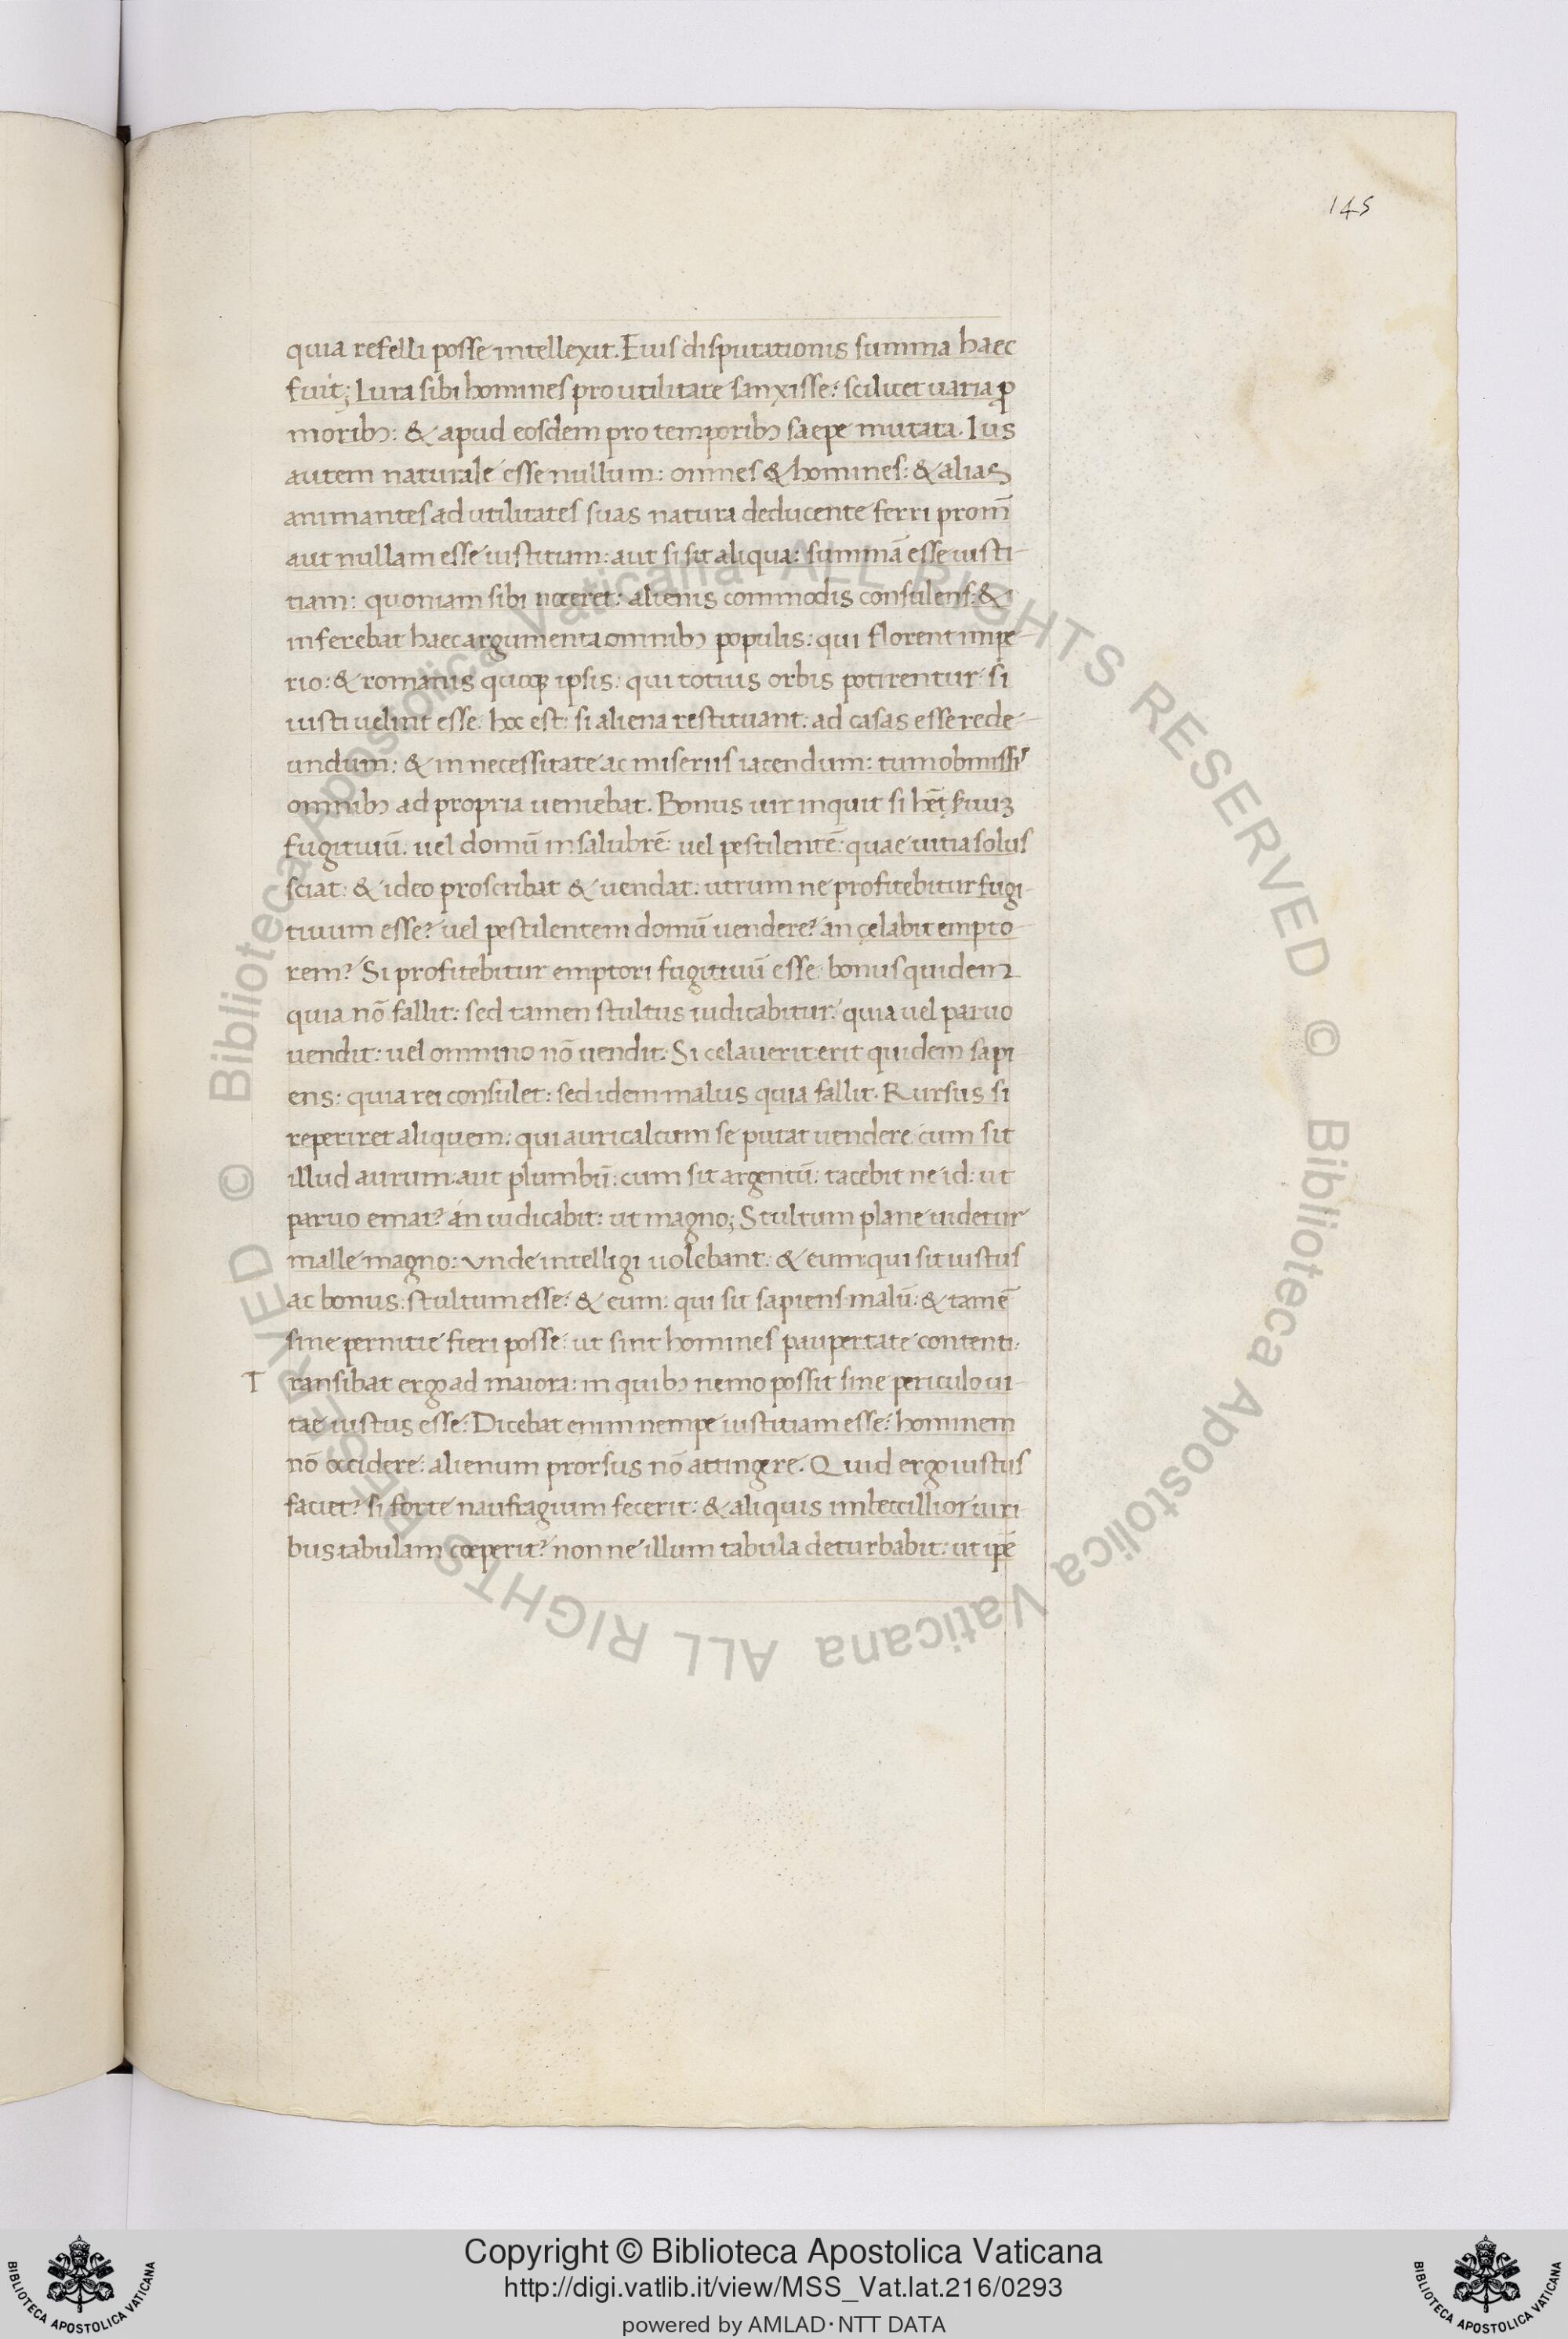 145
quia refelli posse intellexit. Eius disputationis summa haec
fuit; Iura sibi homines pro utilitate sanxisse: scilicet uaria ꝓ
moribꝫ: & apud eosdem pro temporibꝫ saepe mutata. Ius
autem naturale esse nullum: omnes & homines: & alias
animantes ad utilitates suas natura deducente ferri prom̄
aut nullam esse iustitiam: aut si sit aliqua: summā esse iusti-
tiam: quoniam sibi noceret: alienis commodis consulens: &
inferebat haec argumenta omnibꝫ populis: qui florent impe-
rio: & romanis quoqꝫ ipsis: qui totius orbis potirentur: si
iusti uelint esse: hoc est: si aliena restituant: ad casas esse rede-
undum: & in necessitate ac miseriis iacendum: tum obmissi'
omnibꝫ ad propria ueniebat. Bonus uir inquit si hēt
fugitiuū: uel domū insalubrē: uel pestilentē: quae uitia solus
sciat: & ideo proscribat & uendat: utrum ne profitebitur fugi-
tiuum esse? uel pestilentem domū uendere? an celabit empto-
rem? Si profitebitur emptori fugitiuū esse: bonus quidem
quia nō fallit: sed tamen stultus iudicabitur: quia uel paruo
uendit: uel omnino nō uendit: Si celauerit: erit quidem sapi
ens: quia rei consulet: sed idem malus quia fallit. Rursus si
reperiret aliquem: qui auricalcum se putat uendere: cum sit
illud aurum: aut plumbū: cum sit argentū: tacebit ne id: ut
paruo emat? an iudicabit: ut magno; Stultum plane uidetur
malle magno: vnde intelligi uolebant: & eum: qui sit iustus
ac bonus: stultum esse: & eum: qui sit sapiens: malū: & tamē
sine pernitie fieri posse: ut sint homines paupertate contenti.
T ransibat ergo ad maiora: in quibꝫ nemo possit sine periculo ui-
tae iustus esse: Dicebat enim nempe iustitiam esse: hominem
nō occidere: alienum prorsus nō attingere. Quid ergo iustus
faciet? si forte naufragium fecerit: & aliquis imbecillior uiri
bus tabulam coeperit? non ne illum tabula deturbabit: ut ipē
© Biblioteca Apostolica Vaticana ALL RIGHTS RESERVED © Biblioteca Apostolica Vaticana ALL RIGHTS RESERVED
Copyright © Biblioteca Apostolica Vaticana
http://digi.vatlib.it/view/MSS_Vat.lat.216/0293
powered by AMLAD·NTT DATA
BIBLIOTECA APOSTOLICA VATICANA
BIBLIOTECA APOSTOLICA VATICANA